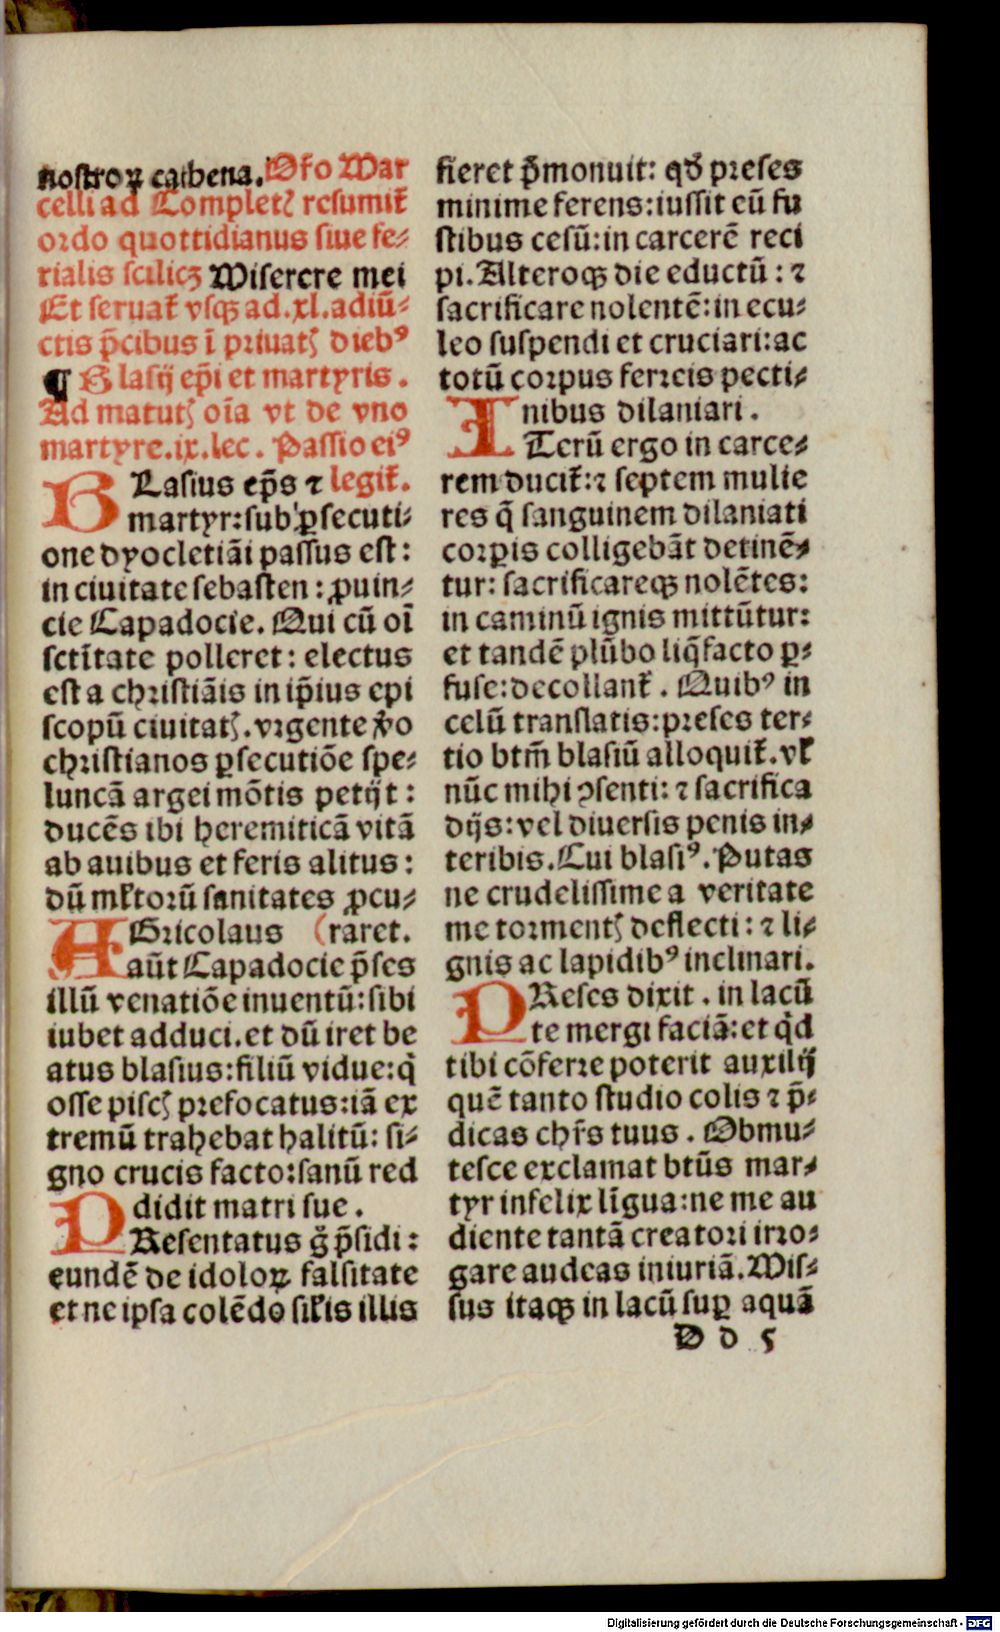 nostroꝝ cathena. Oro Mar
celli ad Completꝭ resumit̄
ordo quottidianus siue fe⸗
rialis scilicꝫ Miserere mei
Et seruat̄ vsqꝫ ad .xl. adiū⸗
ctis p̄cibus ī priuatꝭ diebꝰ
¶ Blasij ep̄i et martyris.
Ad matutꝭ oīa vt de vno
martyre. ix. lec. Passio eiꝰ
BLasius ep̄s ⁊ legit̄.
martyr: sub ꝑsecuti⸗
one dyocletiāi passus est:
in ciuitate sebasten: ꝓuin⸗
cie Capadocie. Qui cū oī
sctītate polleret: electus
est a christiāis in ip̄ius epi
scopū ciuitatꝭ. vrgente v̄o
christianos ꝑsecutiōe spe⸗
luncā argei mōtis petijt:
ducēs ibi heremiticā vitā
ab auibus et feris alitus:
dū mꝉtorū sanitates ꝓcu⸗
AGricolaus (raret.
aūt Capadocie p̄ses
illū venatiōe inuentū: sibi
iubet adduci. et dū iret be
atus blasius: filiū vidue: q̇
osse piscꝭ prefocatus: iā ex
tremū trahebat halitū: si⸗
gno crucis facto: sanū red
didit matri sue.
PResentatus g̊ p̄sidi:
eundē de idoloꝝ falsitate
et ne ipsa colēdo siꝉis illis
fieret p̄monuit: qd̓ preses
minime ferens: iussit eū fu
stibus cesū: in carcerē reci
pi. Alteroqꝫ die eductū: ⁊
sacrificare nolentē: in ecu⸗
leo suspendi et cruciari: ac
totū corpus ferreis pecti⸗
nibus dilaniari.
ITerū ergo in carce⸗
rem ducit̄: ⁊ septem mulie
res q̄ sanguinem dilaniati
corꝑis colligebāt detinē⸗
tur: sacrificareqꝫ nolētes:
in caminū ignis mittūtur:
et tandē plūbo liq̄facto ꝑ⸗
fuse: decollant̄. Quibꝰ in
celū translatis: preses ter⸗
tio btm̄ blasiū alloquit̄. vꝉ
nūc mihi ꝯsenti: ⁊ sacrifica
dijs: vel diuersis penis in⸗
teribis. Cui blasiꝰ. Putas
ne crudelissime a veritate
me tormentꝭ deflecti: ⁊ li⸗
gnis ac lapidibꝰ inclinari.
PReses dixit. in lacū
te mergi faciā: et q̇d
tibi cōferre poterit auxilij
quē tanto studio colis ⁊ p̄⸗
dicas chr̄s tuus. Obmu⸗
tesce exclamat btūs mar⸗
tyr infelix līgua: ne me au
diente tantā creatori irro⸗
gare audeas iniuriā. Mis⸗
sus itaqꝫ in lacū suꝑ aquā
D d 5
Digitalisierung gefördert durch die Deutsche Forschungsgemeinschaft - DFG